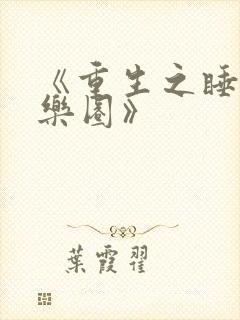 《重生之睡
樂園》
葉霞翟